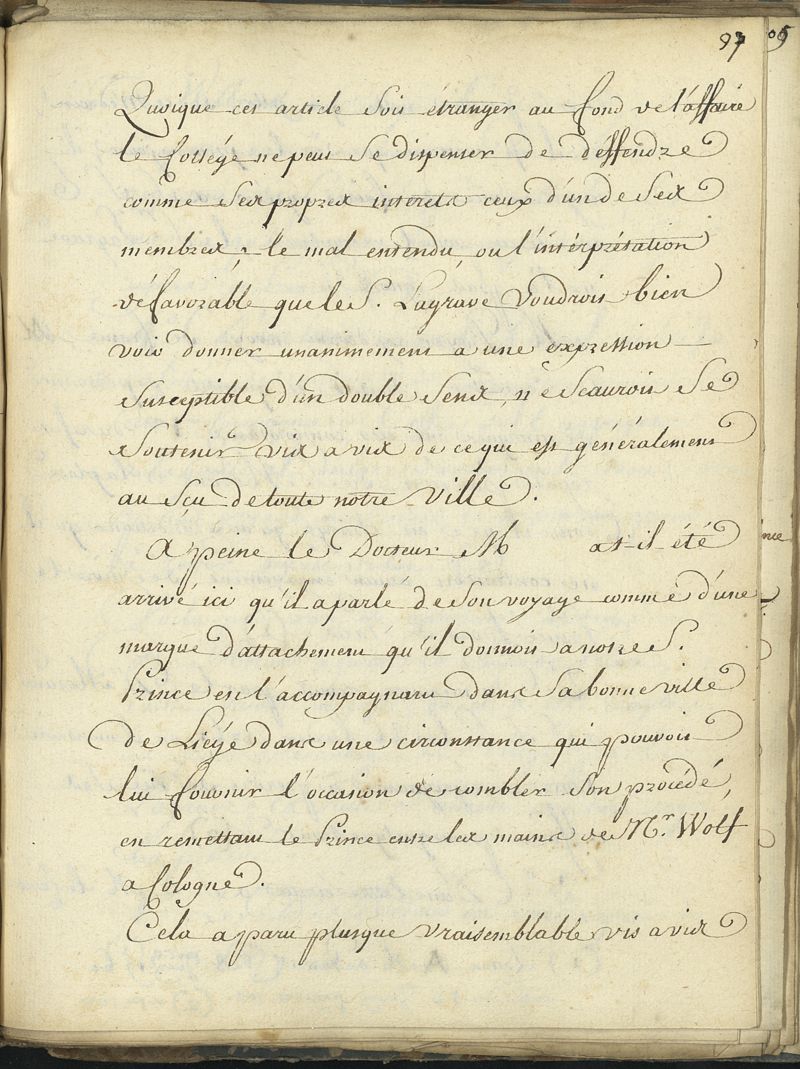 97
Quoique cet article soit étranger au fond de l'affaire
le Collége ne peut se dispenser de deffendre
comme ses propres interets ceux d'un de ses
membres ; le mal entendu, ou l'intérprétation
défavorable que le S. Lagrave voudroit bien
voir donner unanimement a une expression
susceptible d'un double sens, ne scauroit se
soutenir vis a vis de ce qui est généralement
au sçu de toute notre ville.
A peine le Docteur M at-il été
arrivé ici qu'il a parlé de son voyage comme d'une
marque d'attachement qu'il donnoit a notre S.
Prince en l'accompagnant dans sa bonne ville
de Liége dans une circonstance qui pouvoit
lui fournir l'occasion de combler son procédé,
en remettant le Prince entre les mains de Mr. Wolf
a Cologne.
Cela a paru plusque vraisemblable vis a vis